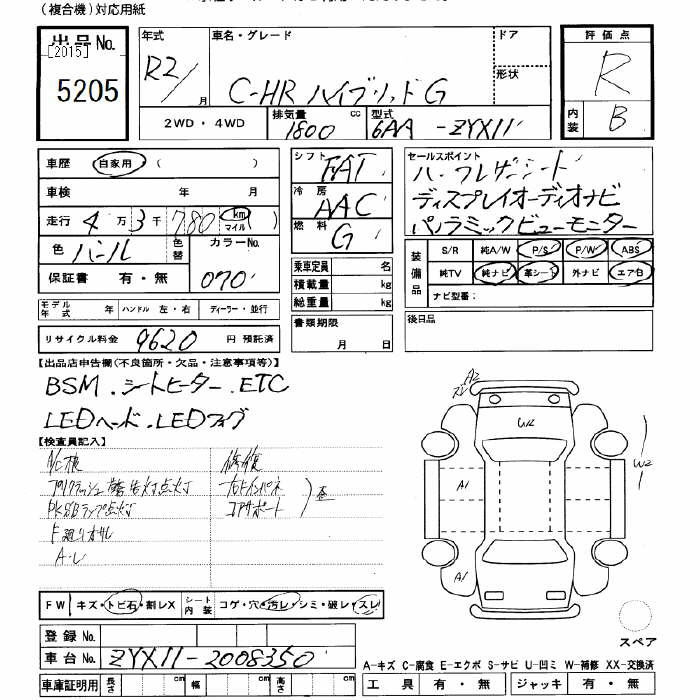 (複合機)対応用紙
出品No.
[2015]
5205
年式
R2/
月
車名・グレード
C-HR ハイブリッド G
ドア
形状
2WD・4WD
排気量
1800
cc
型式
6AA-ZYX11
評価点
R
内装
B
車歴 自家用 ( )
車検 年 月
走行 4万3千780 km マイル
色 パール 色替 カラーNo.
保証書 有・無 070
シフト FAT
冷房 AAC
燃料 G
乗車定員 名
積載量 kg
総重量 kg
書類期限
月 日
セールスポイント
ハーフレザーシート
ディスプレイオーディオナビ
パノラミックビューモニター
装備品
S/R 純A/W P/S P/W ABS
純TV 純ナビ 革シート 外ナビ エアB
ナビ型番:
後日品
モデル年式 年 ハンドル 左・右 ディーラー・並行
リサイクル料金 9620 円 預託済
【出品店申告欄(不良箇所・欠品・注意事項等)】
BSM.シートヒーター.ETC
LEDヘッド.LEDフォグ
【検査員記入】
プリクラッシュ警告灯点灯
修復
コアサポート
歪
A2
G2
A1
W2
A1
FW キズ・トビ石・割レX シート内装 コゲ・穴・汚レ・シミ・破レ・スレ
登録No.
車台No. ZYX11-2008350
車庫証明用 長さ cm 幅 cm 高さ cm
スペア
A-キズ C-腐食 E-エクボ S-サビ U-凹ミ W-補修 XX-交換済
工具 有・無 ジャッキ 有・無